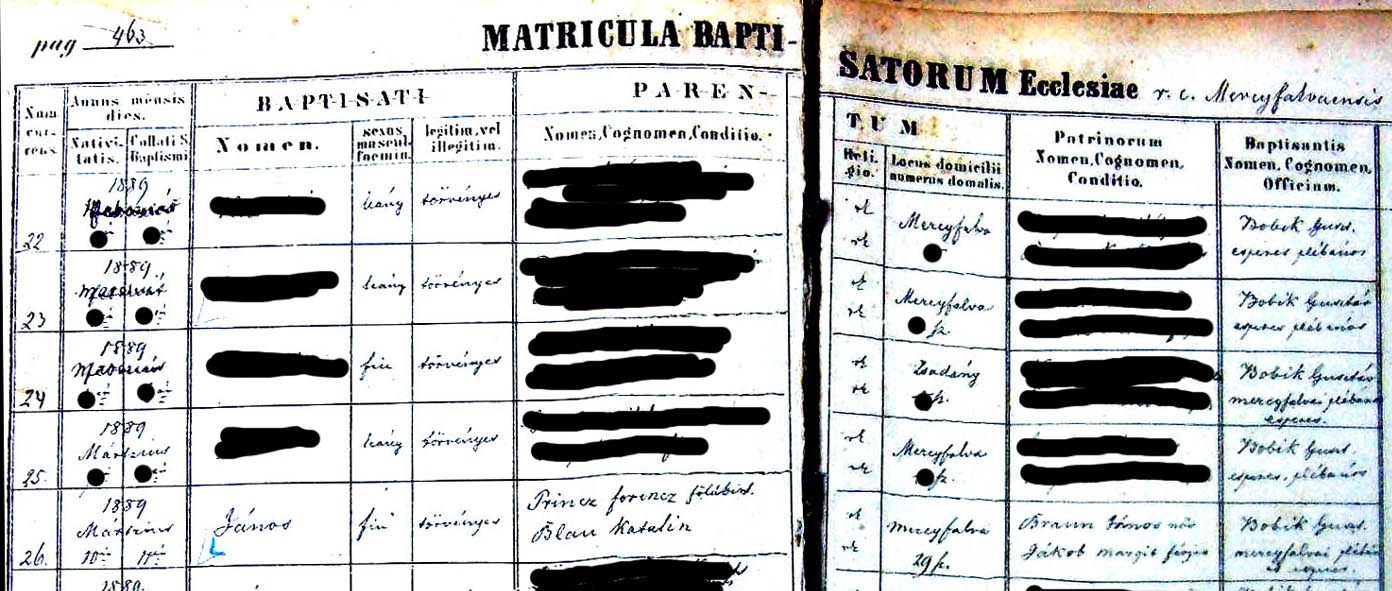 pag 463
MATRICULA BAPTI-
SATORUM Ecclesiae r. c. Mercyfalvaensis
Num. cur-rens.
Annus mensis dies.
BAPTISATI
PAREN-
TUM
Nativi-tatis.
Collati S. Baptismi
Nomen.
sexus mascul. foemin.
legitim, vel illegitim.
Nomen, Cognomen, Conditio.
Reli-gio.
Locus domicilii numerus domalis.
Patrinorum Nomen, Cognomen, Conditio.
Baptisantis Nomen, Cognomen, Officium.
1889
22
leány
törvényes
rk
rk
Mercyfalva
Bobik Guszt.
esperes plébános
1889
23
leány
törvényes
rk
rk
Mercyfalva
sz.
Bobik Gusztáv
esperes plébános
1889
24
fiú
törvényes
rk
rk
Zsadány
sz.
Bobik Gusztáv
mercyfalvai plébános
esperes.
1889
Március
25.
leány
törvényes
rk
rk
Mercyfalva
sz.
Bobik Guszt.
esperes, plébános
1889
Március
26.
10én 11én
János
fiú
törvényes
Princz Ferencz földbirt.
Blau Katalin
rk
rk
Mercyfalva
29 sz.
Braun János
Jákob Margit
Bobik Guszt.
mercyfalvai plébán
és esperes.
1889.